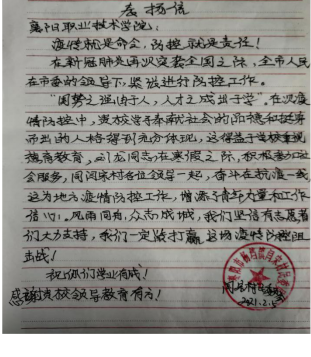 表扬信
襄阳职业技术学院：
疫情就是命令，防控就是责任！
在新冠肺炎再次突袭全国之际，全市人民
在市委的领导下，紧张进行防控工作。
"国势之强由于人，人才之成出于学"。在次疫
情防控中，贵校学子奉献社会的和挺身
而出的人格得到充分体现，这得益于贵校重视
德育教育，刘龙同志在寒假之际，积极参加社
会服务，同闫宋村各位领导一起，奋斗在抗疫一线
这为地方疫情防控工作，增添了青年力量和工作
信心。风雨同舟，众志成城，我们坚信有志愿者
们大力支持，我们一定能打赢这场疫情防控阻
击战！
祝：你们学业有成！
感谢贵校领导教育有方！
2021.2.5